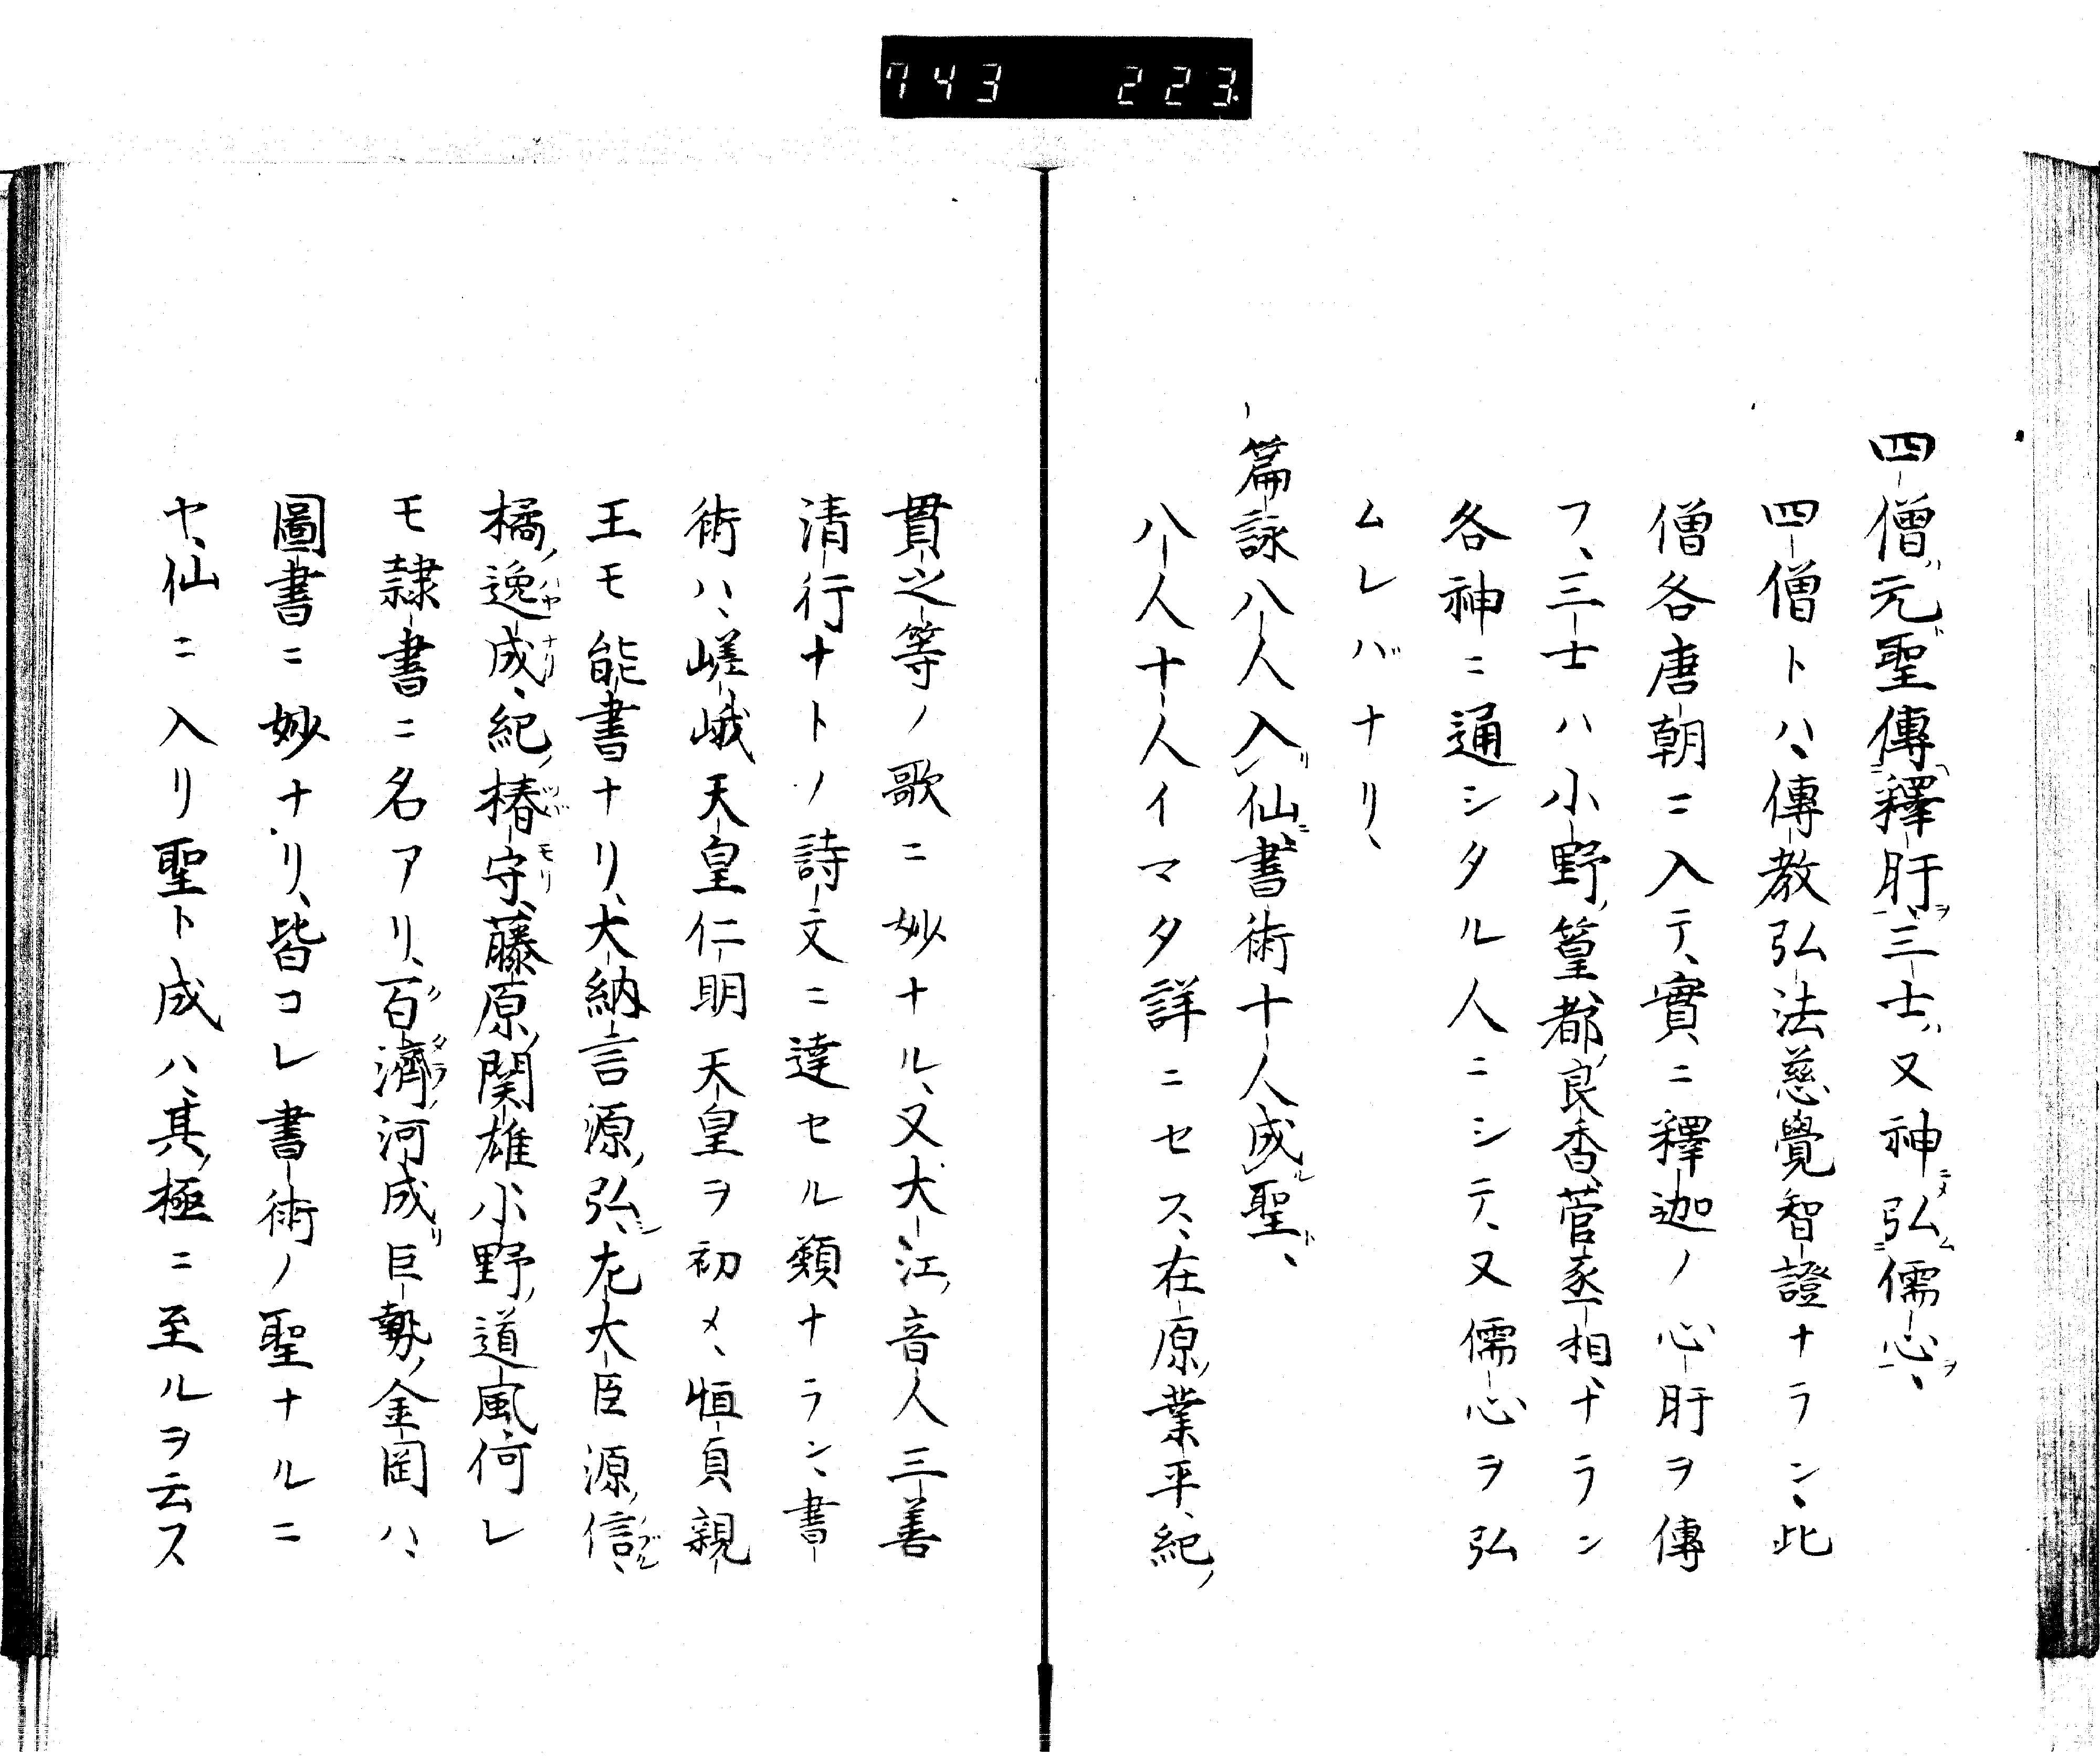 743 223
四僧元聖傳釋肝三士又神弘儒心、
四僧トハ、傳教弘法慈覺智證ナラン、此
僧各唐朝ニ入テ、實ニ釋迦ノ心肝ヲ傳
フ、三士ハ小野篁、都良香、菅丞相、ナラン
各神ニ通シタル人ニシテ、又儒心ヲ弘
ムレバナリ、
篇詠八人入仙書術十人成聖、
八人十人イマタ詳ニセス、在原業平、紀
貫之等ノ歌ニ妙ナル、又大江音人三善
清行ナトノ詩文ニ達セル類ナラン、書
術ハ、嵯峨天皇仁明天皇ヲ初メ、恒貞親
王モ能書ナリ、大納言源弘、左大臣源信、
橘逸成、紀椿守、藤原関雄小野道風何レ
モ隷書ニ名アリ、百濟河成巨勢金岡ハ、
圖書ニ妙ナリ、皆コレ書術ノ聖ナルニ
ヤ、仙ニ入リ聖ト成ハ、其極ニ至ルヲ云ス